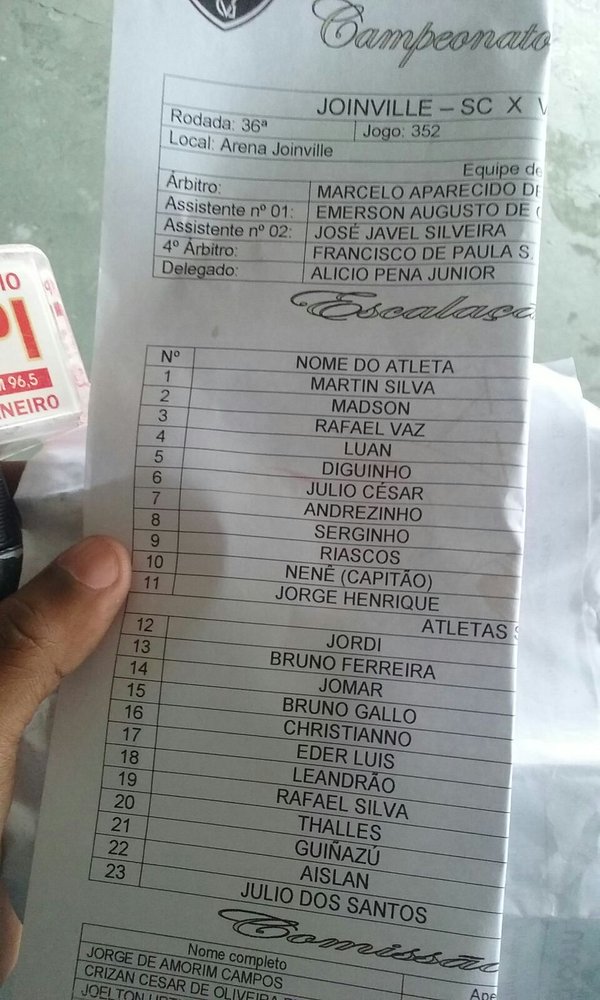 Campeonato
JOINVILLE – SC X V
Rodada: 36ª Jogo: 352
Local: Arena Joinville
Equipe de
Árbitro: MARCELO APARECIDO DE
Assistente nº 01: EMERSON AUGUSTO DE
Assistente nº 02: JOSÉ JAVEL SILVEIRA
4º Árbitro: FRANCISCO DE PAULA S.
Delegado: ALICIO PENA JUNIOR
Escalaçã
Nº NOME DO ATLETA
1 MARTIN SILVA
2 MADSON
3 RAFAEL VAZ
4 LUAN
5 DIGUINHO
6 JULIO CÉSAR
7 ANDREZINHO
8 SERGINHO
9 RIASCOS
10 NENÊ (CAPITÃO)
11 JORGE HENRIQUE
ATLETAS S
12 JORDI
13 BRUNO FERREIRA
14 JOMAR
15 BRUNO GALLO
16 CHRISTIANNO
17 EDER LUIS
18 LEANDRÃO
19 RAFAEL SILVA
20 THALLES
21 GUIÑAZÚ
22 AISLAN
23 JULIO DOS SANTOS
Comissão
Nome completo Ape
JORGE DE AMORIM CAMPOS
CRIZAN CESAR DE OLIVEIRA
JOELTON
IO
PI
M 96,5
NEIRO